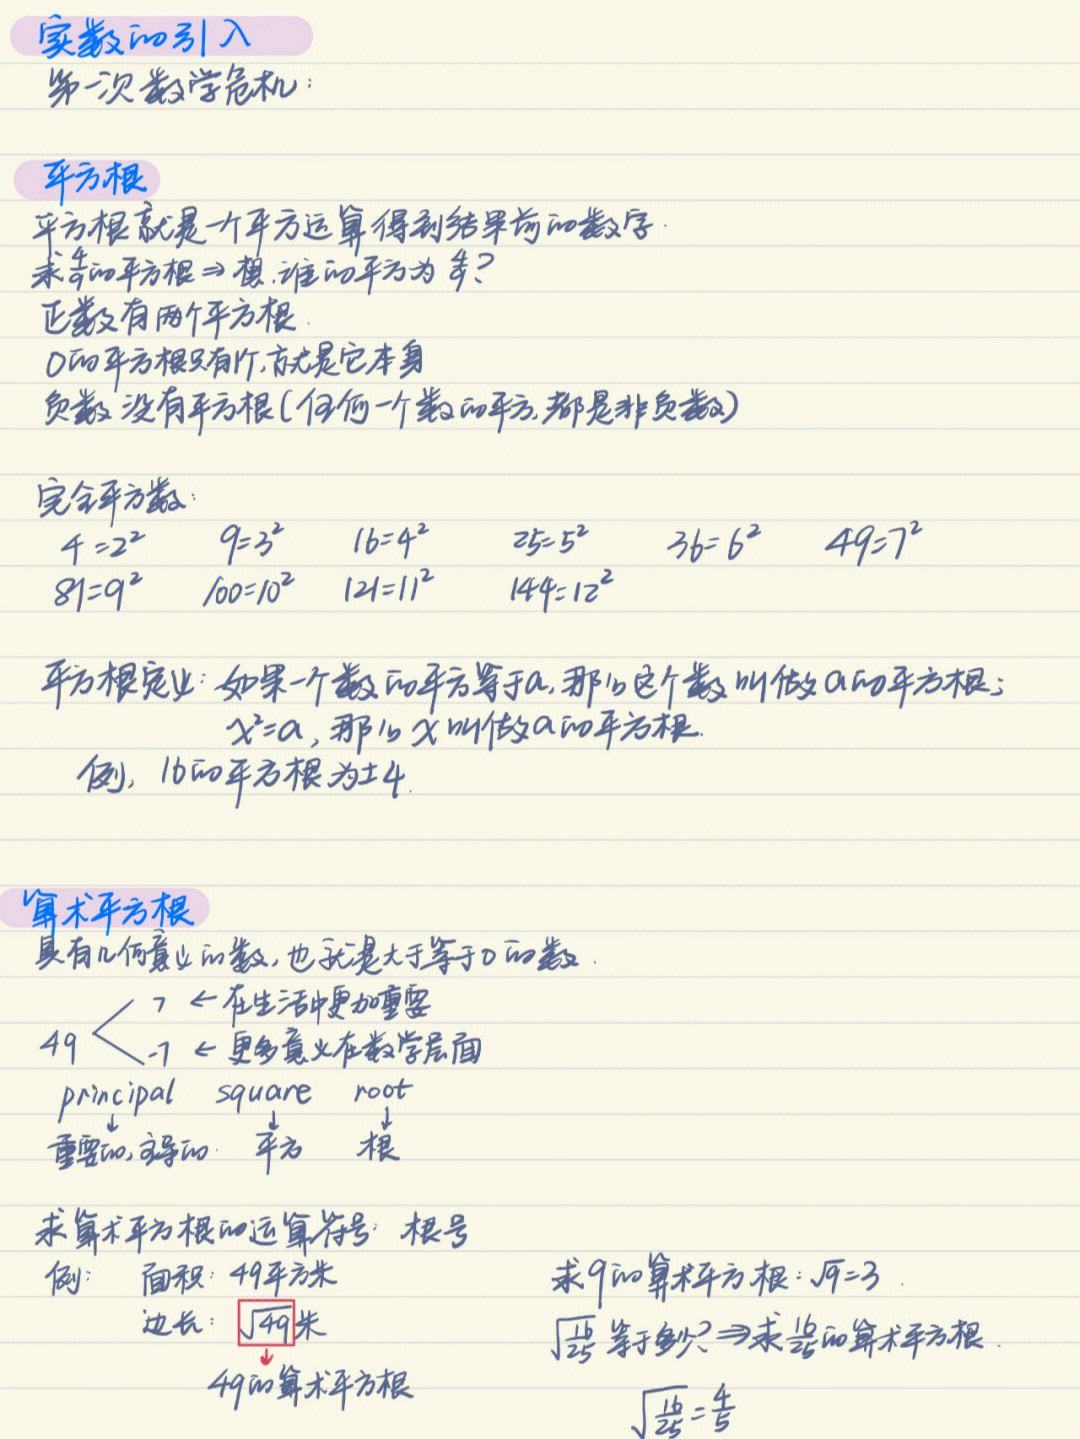 实数的引入
第一次数学危机:
平方根
平方根就是一个平方运算得到结果前的数字.
求4/9的平方根⇒想,谁的平方为4/9?
正数有两个平方根.
0的平方根只有1个,就是它本身
负数没有平方根(任何一个数的平方,都是非负数)
完全平方数:
4=2² 9=3² 16=4² 25=5² 36=6² 49=7²
81=9² 100=10² 121=11² 144=12²
平方根定义: 如果一个数的平方等于a,那么这个数叫做a的平方根;
x²=a,那么x叫做a的平方根.
例, 16的平方根为±4.
算术平方根
具有几何意义的数,也就是大于等于0的数.
49 7 ←在生活中更加重要
-7 ←更多意义在数学层面
principal square root
↓ ↓ ↓
重要的,主导的. 平方 根
求算术平方根的运算符号: 根号
例: 面积: 49平方米
边长: √49米
↓
49的算术平方根
求9的算术平方根: √9=3.
√16/25等于多少?⇒求16/25的算术平方根.
√16/25=4/5